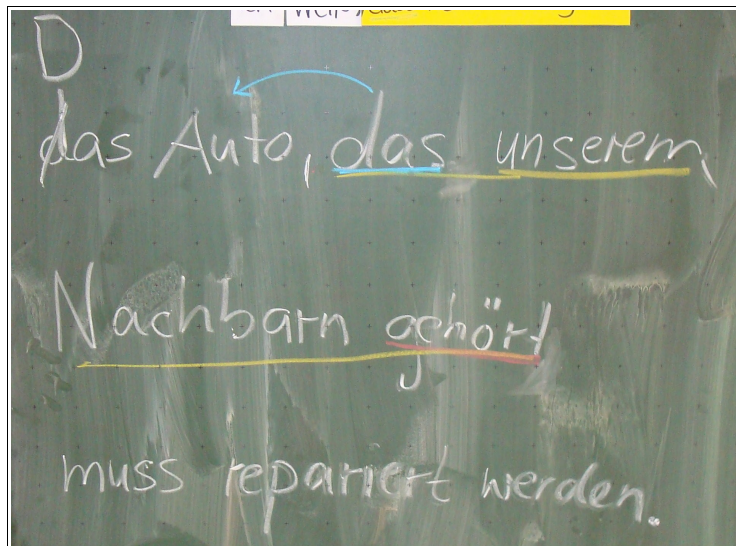 D
das Auto, das unserem
Nachbarn gehört
muss repariert werden.